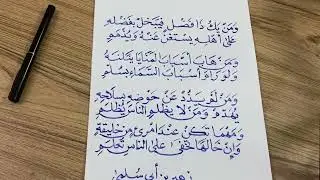 وَمَنْ يَكُ ذَا فَضْلٍ فَيَبْخَلْ بِفَضْلِهِ
عَلَى أَهْلِهِ يُسْتَغْنَ عَنْهُ وَيُذْمَمِ
وَمَنْ هَابَ أَسْبَابَ الْمَنَايَا يَنَلْنَهُ
وَلَوْ رَامَ أَسْبَابَ السَّمَاءِ بِسُلَّمِ
وَمَنْ لَمْ يَذُدْ عَنْ حَوْضِهِ بِسِلَاحِهِ
يُهَدَّمْ وَمَنْ لَا يَظْلِمِ النَّاسَ يُظْلَمِ
وَمَهْمَا تَكُنْ عِنْدَ امْرِئٍ مِنْ خَلِيقَةٍ
وَإِنْ خَالَهَا تَخْفَى عَلَى النَّاسِ تُعْلَمِ
زهير بن أبي سلمى